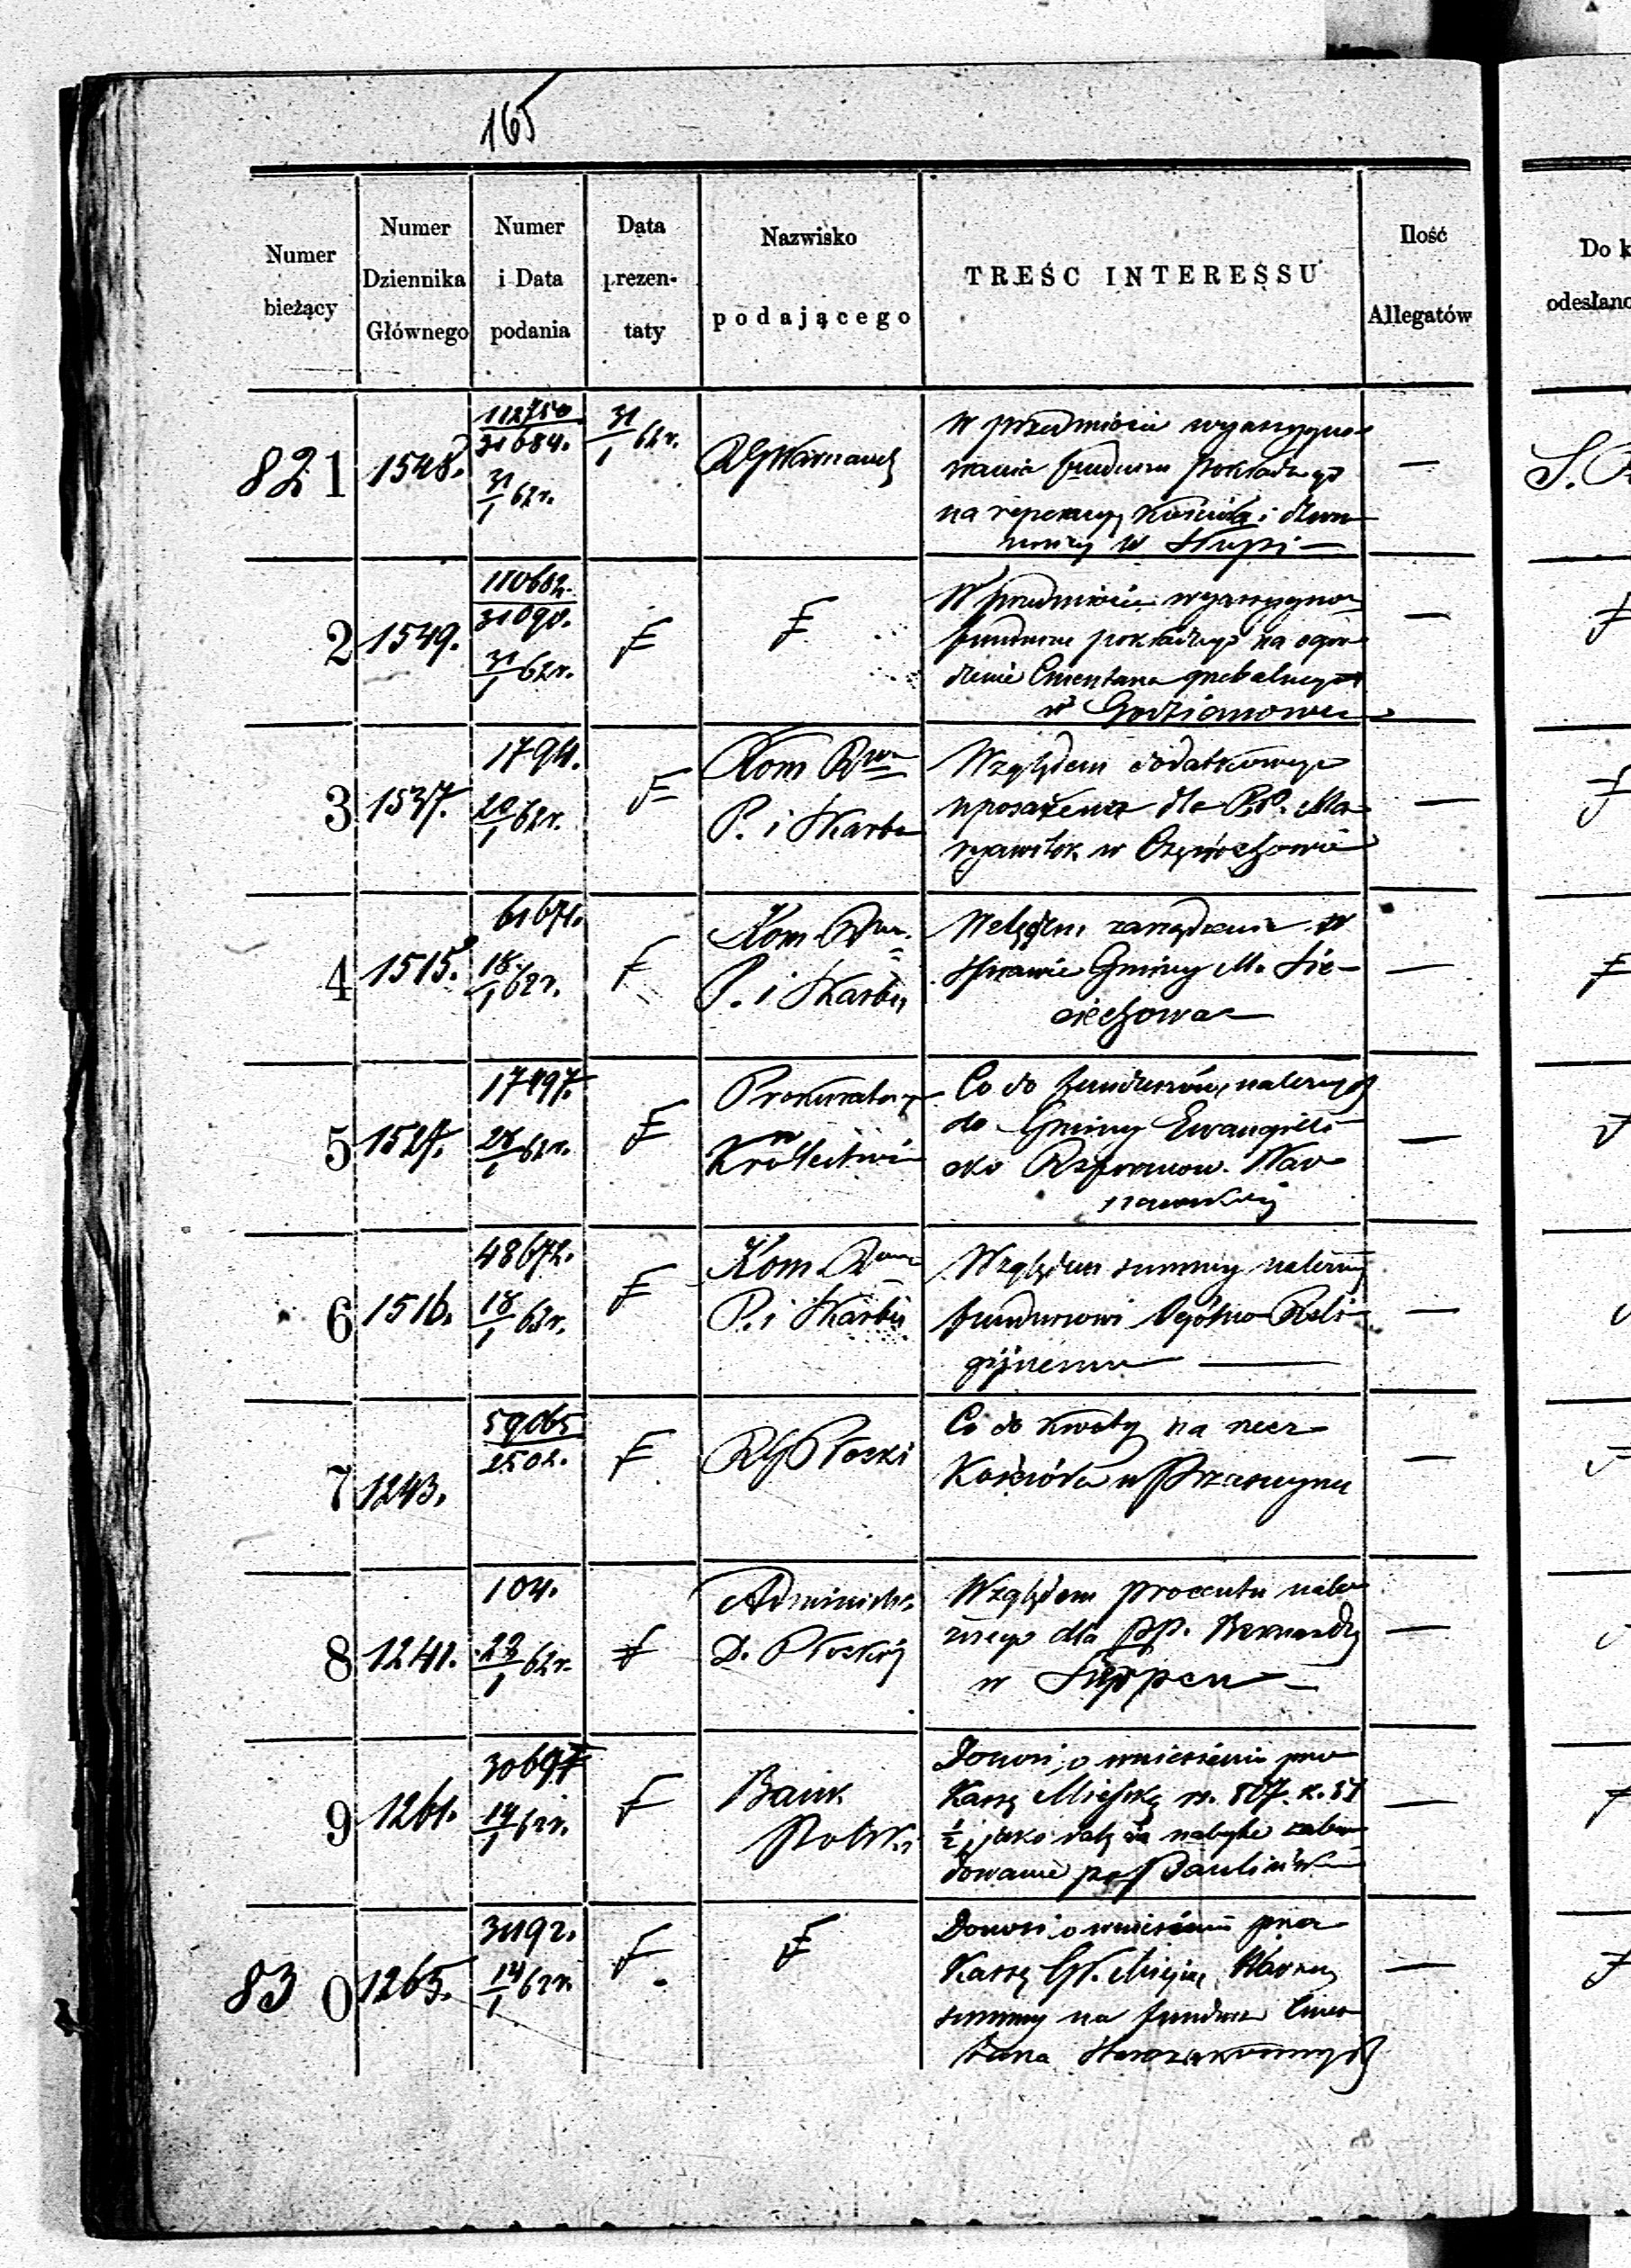 165
Numer bieżący
Numer Dziennika Głównego
Numer i Data podania
Data prezen- taty
Nazwisko podającego
TREŚC INTERESSU
Ilość Allegatów
Do k
odesłano
821 1548. 112750 / 31684. 31/1 62r. 31/1 62r. RG Warszawski
W przedmiocie wyassygno-
wania funduszu pokładnego
na reperacyę Kościoła i dzwo-
nnicy w Słupi —
2 1549. 110682. / 31098. 31/1 62r. F F
W przedmiocie wyassygnow
funduszu pokładnego na ogro-
dzenie Cmentarza grzebalnego
w Godzianowie
3 1537. 1794. 20/1 62r. F Kom Rwa
P. i Skarbu
Względem dodatkowego
uposażenia dla PP. Ma-
ryawitek w Częstochowie
4 1515. 61671. 18/1 62r. F Kom Rwa
P. i Skarbu
Względem zarządzenia w
sprawie Gminy M. Sie-
ciechowa
5 1527. 17497. 28/1 62r. F Prokurator
w Królestwie
Co do funduszów należnych
do Gminy Ewangelic-
sko Reformow. War-
szawskiej
6 1516. 48672. 18/1 62r. F Kom Rwa
P. i Skarbu
Względem summy należnej
funduszowi Ogólno Reli-
gijnemu —
7 1243. 59065 / 2502. F RG Płocki
Co do kwoty na rzecz
Kościoła w Przasnyszu
8 1241. 104. 23/1 62r. F Administr.
D. Płockiej
Względem procentu nale-
żnego dla PP. Bernardy
w Sierpcu —
9 1261. 30697 14/1 62r. F Bank
Polski
Donosi o wniesieniu przez
Kassę Miejską rs. 807. k. 51
1/2 jako ratę za nabyte zabu-
dowanie po Paulińskie
830 1265. 31192. 14/1 62r. F F
Donosi o wniesieniu przez
Kassę Gł. Miejską Warsz
summy na fundusz Cmen-
tarza Starozakonnych